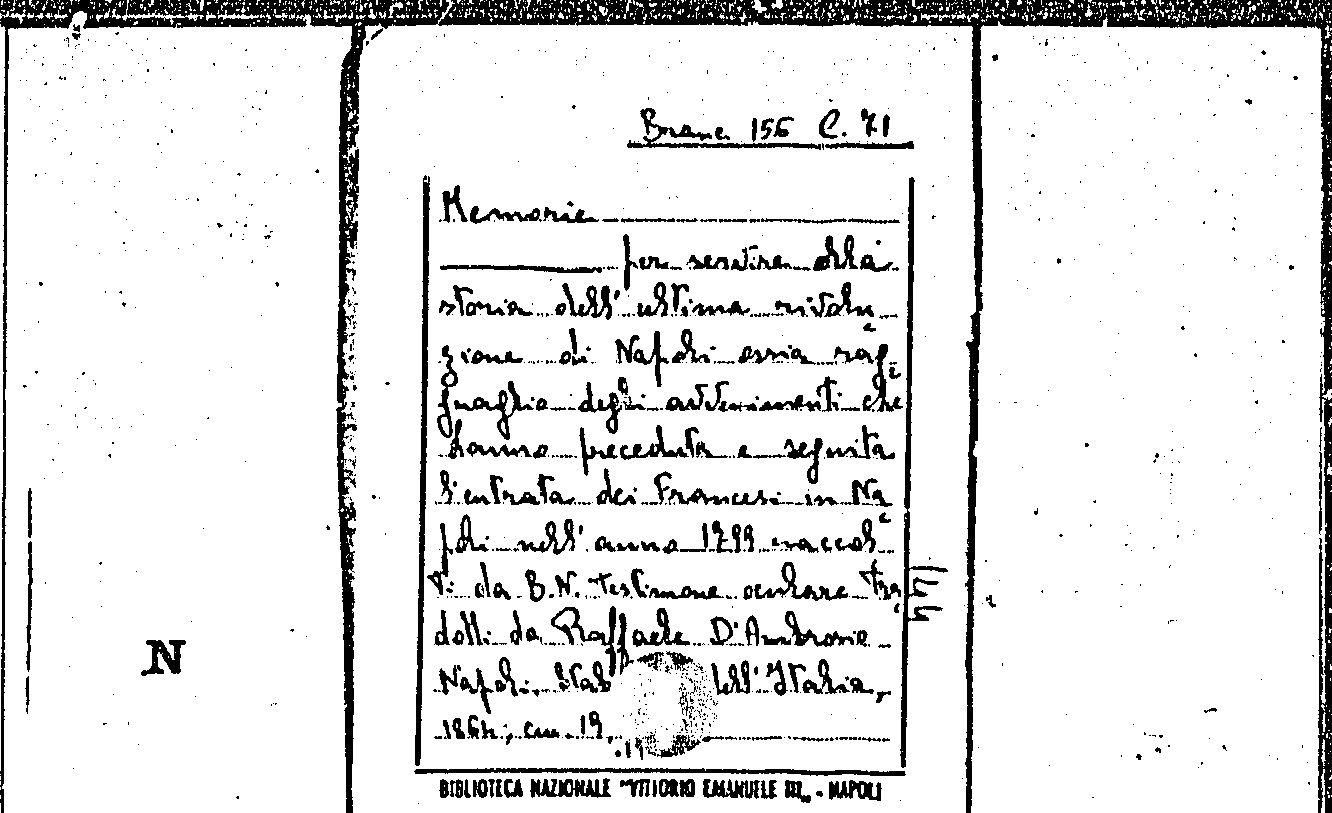 Branc. 156 C. 71
Memorie
per servire alla
storia dell' ultima rivolu
zione di Napoli ossia rag
guaglio degli avvenimenti che
hanno preceduta e seguita
l'entrata dei Francesi in Na
poli nell' anno 1799 raccol
ti da B.N. testimone oculare tra
dotti da Raffaele D'Ambrosio
Napoli. Stab dell' Italia,
1864; cm. 19,
BIBLIOTECA NAZIONALE "VITTORIO EMANUELE III„ - NAPOLI
N